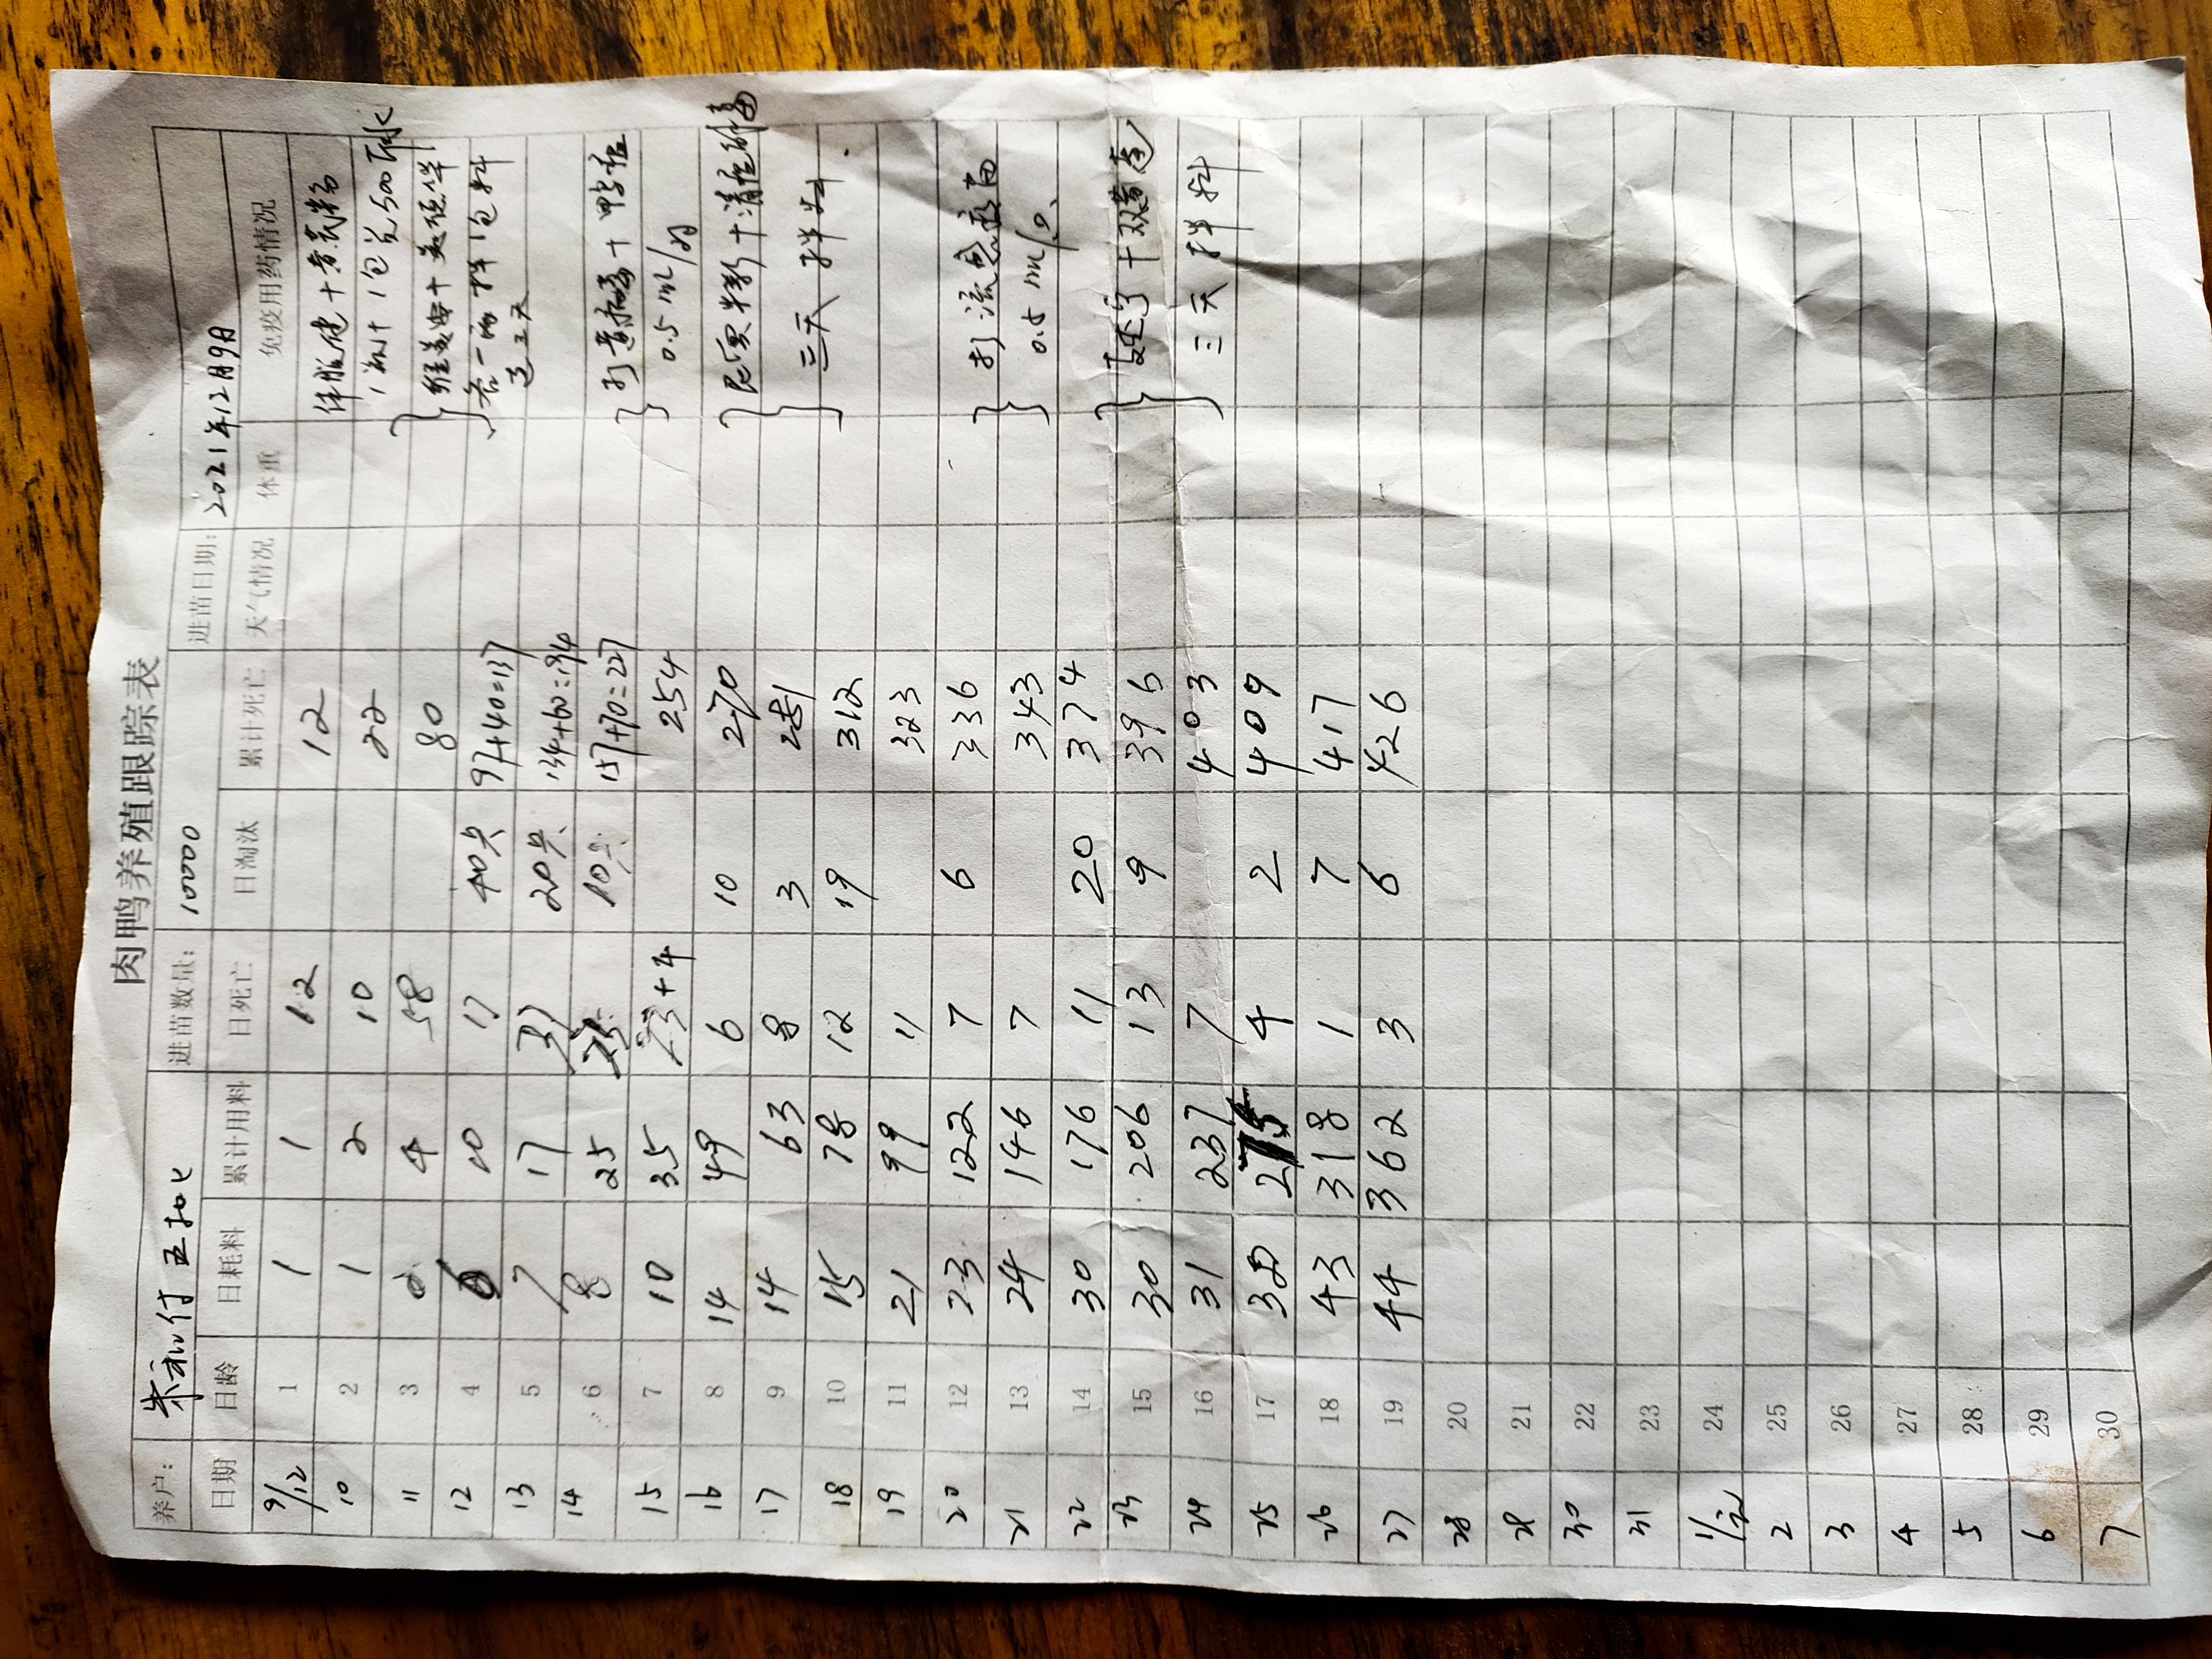 肉鸭养殖跟踪表
养户: 进苗数量: 10000 进苗日期: 2021年12月9日
日期 日龄 日耗料 累计用料 日死亡 日淘汰 累计死亡 天气情况 体重 免疫用药情况
9/12 1 1 1 12 12
10 2 1 2 10 22 1瓶+1包兑500斤水
11 3 2 4 58 80
12 4 6 10 17 40只 97+40=137
13 5 7 17 37 20只 134+60=194
14 6 8 25 23 10只 157+70=227
15 7 10 35 23+4 254 0.5ml/羽
16 8 14 49 6 10 270
17 9 14 63 8 3 281 三天拌料
18 10 15 78 12 19 312
19 11 21 99 11 323
20 12 23 122 7 6 336 打流感
21 13 24 146 7 343 0.5ml/
22 14 30 176 11 20 374
23 15 30 206 13 9 396
24 16 31 237 7 403 三天拌料
25 17 38 275 4 2 409
26 18 43 318 1 7 417
27 19 44 362 3 6 426
28 20
29 21
30 22
31 23
1/元 24
2 25
3 26
4 27
5 28
6 29
7 30